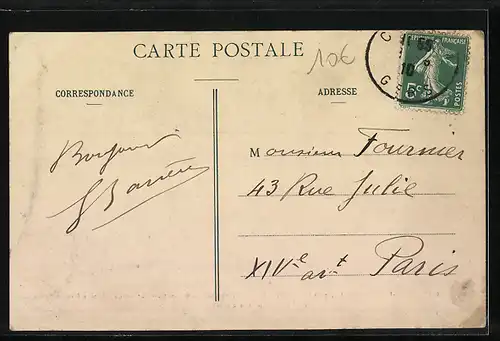 CARTE POSTALE
10€
CORRESPONDANCE
ADRESSE
Bonjour
Monsieur Fournier
43 Rue Julie
XIVe art Paris
FRANÇAISE
POSTES
5c
GERS